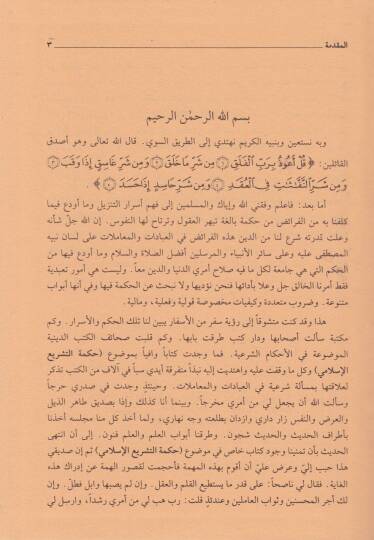 المقدمة ٣
بسم الله الرحمٰن الرحيم
وبه نستعين وبنبيه الكريم نهتدي إلى الطريق السوي. قال الله تعالى وهو أصدق
القائلين: ﴿ قُلْ أَعُوذُ بِرَبِّ ٱلْفَلَقِ ١ مِن شَرِّ مَا خَلَقَ ٢ وَمِن شَرِّ غَاسِقٍ إِذَا وَقَبَ ٣
وَمِن شَرِّ ٱلنَّفَّٰثَٰتِ فِى ٱلْعُقَدِ ٤ وَمِن شَرِّ حَاسِدٍ إِذَا حَسَدَ ٥ ﴾ .
أما بعد: فاعلم وفقني الله وإياك والمسلمين إلى فهم أسرار التنزيل وما أودع فيما
كلفنا به من الفرائض من حكمة بالغة تبهر العقول وترتاح لها النفوس. إن الله جلّ شأنه
وعلت قدرته شرع لنا من الدين هذه الفرائض في العبادات والمعاملات على لسان نبيه
المصطفى عليه وعلى سائر الأنبياء والمرسلين أفضل الصلاة والسلام وما أودع فيها من
الحكم التي هي جامعة لكل ما فيه صلاح أمري الدنيا والدين معاً. وليست هي أمور تعبدية
فقط أمرنا الخالق جل وعلا بأدائها فنحن نؤديها ولا نبحث عن الحكمة فيها وفي أنها أبواب
متنوعة. وضروب متعددة وكيفيات مخصوصة قولية وفعلية، ومالية.
هذا وقد كنت متشوقاً إلى رؤية سفر من الأسفار يبين لنا تلك الحكم والأسرار. وكم
مكتبة سألت أصحابها ودار كتب طرقت بابها. وكم قلبت صحائف الكتب الدينية
الموضوعة في الأحكام الشرعية. فما وجدت كتاباً وافياً بموضوع (حكمة التشريع
الإسلامي) وكل ما وقفت عليه واهتديت إليه نبذاً متفرقة أيدي سبأ في آلاف من الكتب تذكر
لعلاقتها بمسألة شرعية في العبادات والمعاملات. وحينئذٍ وجدت في صدري حرجاً
وسألت الله أن يجعل لي من أمري مخرجاً. وبينما أنا كذلك وإذا بصديق طاهر الذيل
والعرض والنفس زار داري وازدان بطلعته وجه نهاري، ولما أخذ كل منا مجلسه أخذنا
بأطراف الحديث والحديث شجون. وطرقنا أبواب العلم والعلم فنون. إلى أن انتهى
الحديث بأن تمنينا وجود كتاب خاص في موضوع (حكمة التشريع الإسلامي) ثم إن صديقي
هذا حبب إليّ وعرض عليّ أن أقوم بهذه المهمة فأحجمت لقصور الهمة عن إدراك هذه
الغاية. فقال لي ناصحاً: على قدر ما يستطيع القلم والعقل. وإن لم يصبها وابل فطلّ. وإن
لك أجر المحسنين وثواب العاملين وعندئذٍ قلت: رب هب لي من أمري رشداً، وارسل لي